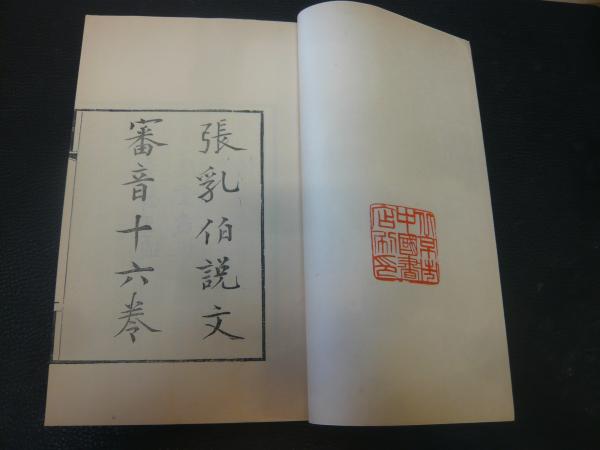 張乳伯説文
審音十六卷
北京市
中國書
店刷印